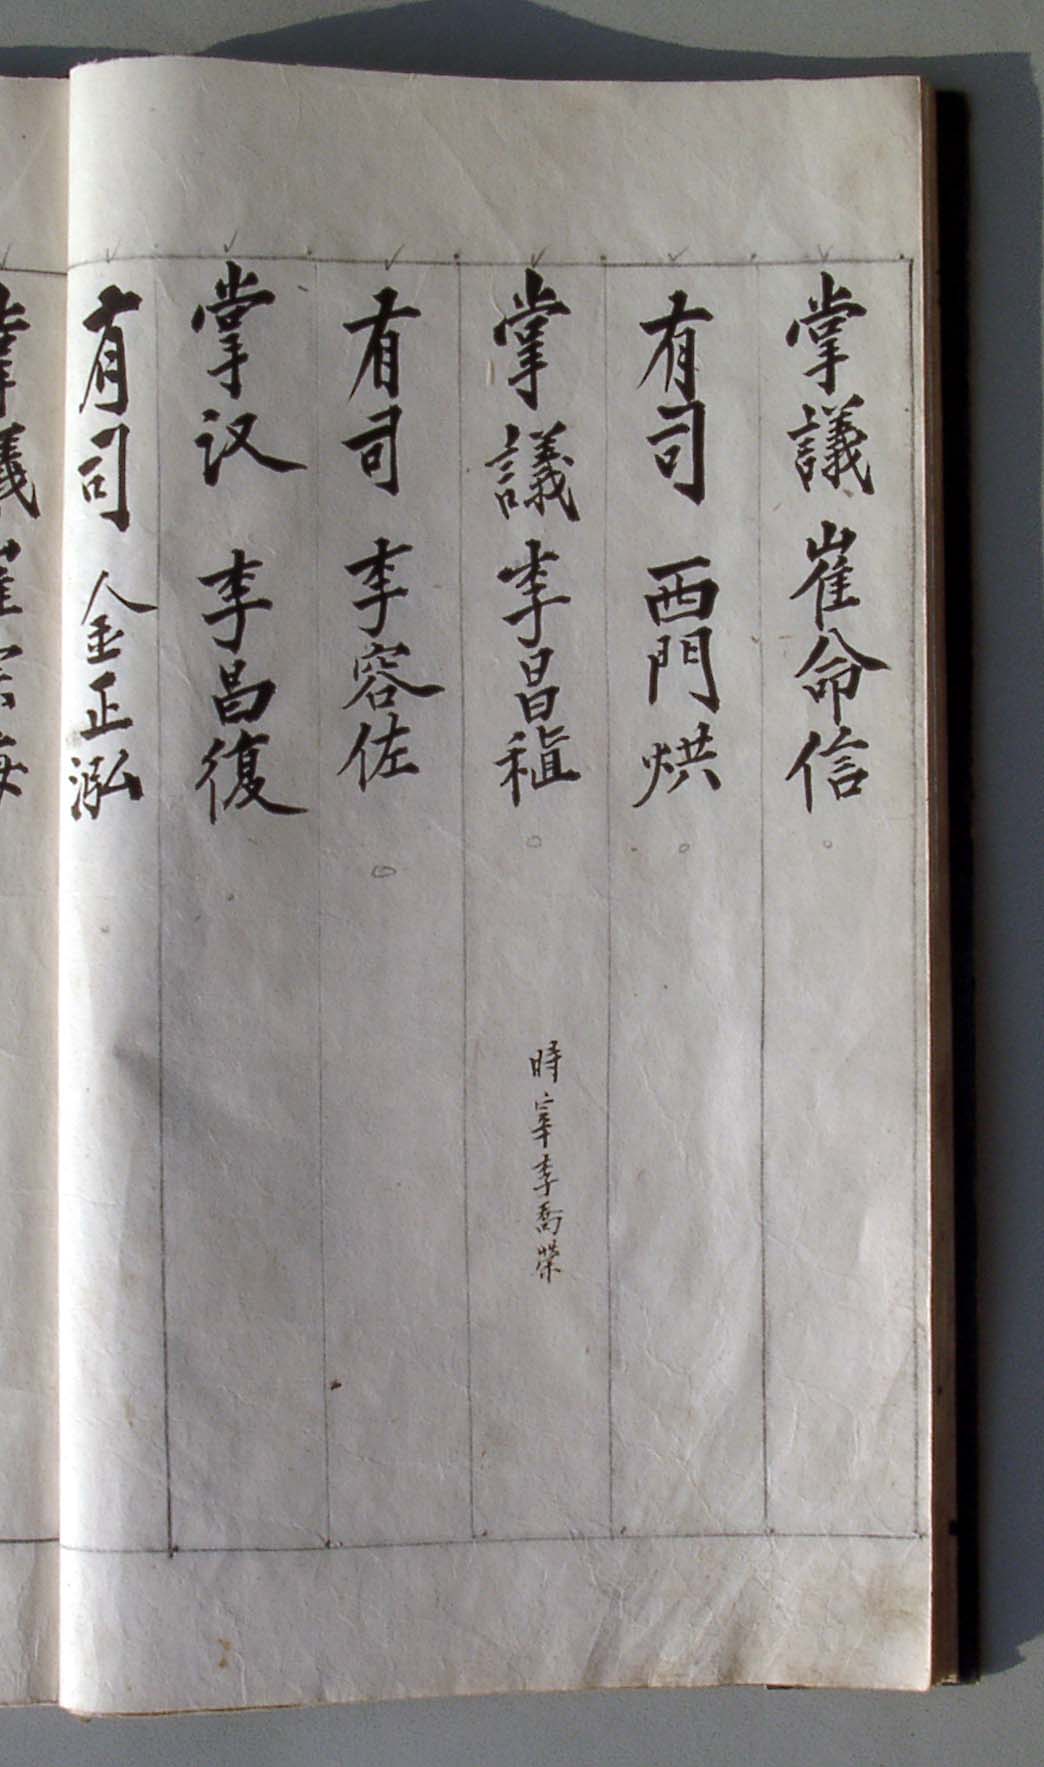 掌議 崔命信
有司 西門烘
掌議 李昌稙
時宰李喬榮
有司 李容佐
掌汉 李昌復
有司 金正泓
掌議 崔宗海